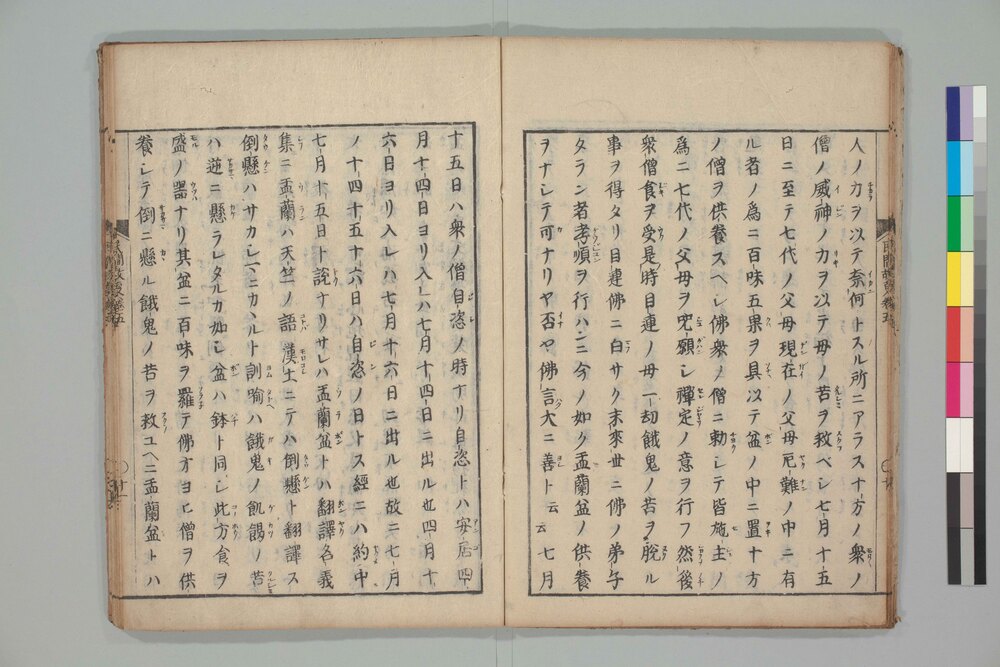 人ノ力ヲ以テ奈何トスル所ニアラス十方ノ衆ノ
僧ノ威神ノ力ヲ以テ母ノ苦ヲ救ベシ七月十五
日ニ至テ七代ノ父母現在ノ父母厄難ノ中ニ有
ル者ノ爲ニ百味五果ヲ具以テ盆ノ中ニ置十方
ノ僧ヲ供養スヘレ佛衆ノ僧ニ勅シテ皆施主ノ
爲ニ七代ノ父母ヲ咒願シ禪定ノ意ヲ行フ然後
衆僧食ヲ受是時目連ノ母一劫餓鬼ノ苦ヲ脫ル
事ヲ得タリ目連佛ニ白サク末來世ニ佛ノ弟子
タラン者孝順ヲ行ハンニ今ノ如ク盂蘭盆ノ供養
ヲナシテ可ナリヤ否ヤ佛言大ニ善ト云云七月
十五日ハ衆ノ僧自恣ノ時ナリ自恣トハ安居四
月十四日ヨリ入レハ七月十四日ニ出ル也四月十
六日ヨリ入レハ七月十六日ニ出ル也故ニ七月
ノ十四十五十六日ハ自恣ノ日トス經ニハ約中
七月十五日ト說ナリサレハ盂蘭盆トハ翻譯名義
集ニ盂蘭ハ天竺ノ語漢土ニテハ倒懸ト翻譯ス
倒懸ハサカシマニカヽルト訓喩ハ餓鬼ノ飢餲ノ苦
ハ逆ニ懸ラレタルカ如シ盆ハ鉢ト同シ此方食ヲ
盛ノ器ナリ其盆ニ百味ヲ羅テ佛オヨヒ僧ヲ供
養シテ倒ニ懸ル餓鬼ノ苦ヲ救ユヘニ盂蘭盆トハ